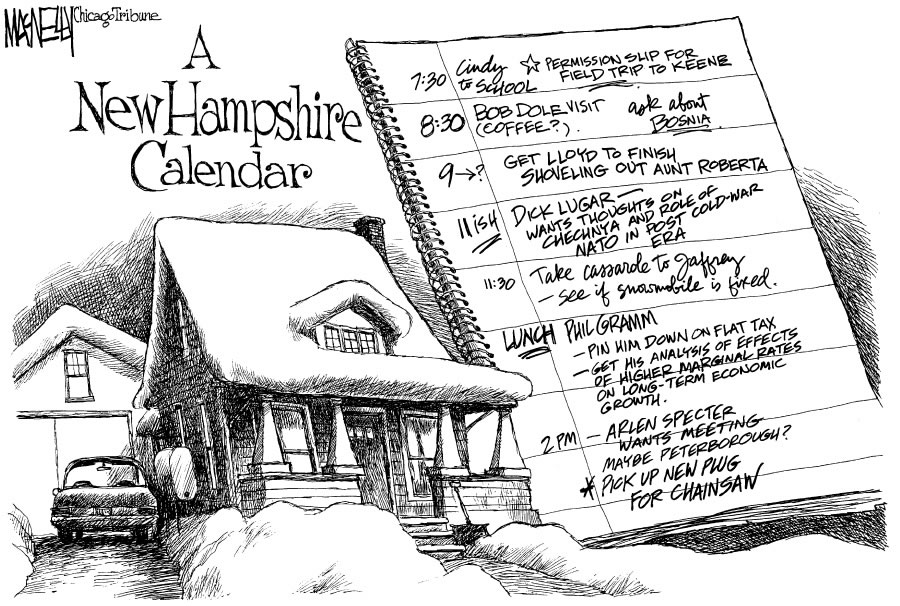 MACNELLY Chicago Tribune
A
New Hampshire
Calendar
7:30 Cindy to SCHOOL ☆ PERMISSION SLIP FOR
FIELD TRIP TO KEENE
8:30 BOB DOLE VISIT
(COFFEE?). ask about
BOSNIA
9→? GET LLOYD TO FINISH
SHOVELING OUT AUNT ROBERTA
11ish DICK LUGAR—
WANTS THOUGHTS ON
CHECHNYA AND ROLE OF
NATO IN POST COLD-WAR
ERA
11:30 Take cassarole to Jaffrey
- see if snowmobile is fixed.
LUNCH PHIL GRAMM
- PIN HIM DOWN ON FLAT TAX
- GET HIS ANALYSIS OF EFFECTS
OF HIGHER MARGINAL RATES
ON LONG-TERM ECONOMIC
GROWTH.
2 PM - ARLEN SPECTER
WANTS MEETING
MAYBE PETERBOROUGH?
* PICK UP NEW PLUG
FOR CHAINSAW